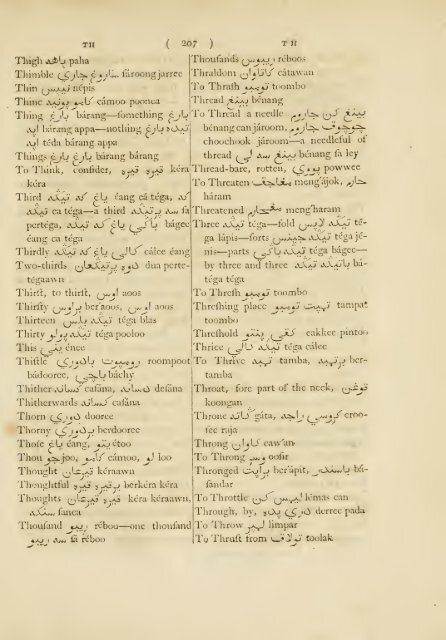 TH ( 207 ) TH
Thigh پاهه paha
Thimble ساروغ جاري sároong jarree
Thin نيپيس népis
Thine كامو پوڽا cámoo poonea
Thing بارغ bárang—something بارغ
اپ bárang appa—nothing تيده بارغ
اپ téda bárang appa
Things بارغ بارغ bárang bárang
To Think, consider, كير كير kéra
kéra
Third يڠ كتيݢ éang cá téga, كتيݢ
ca téga—a third سڤرتيݢ sa
pertéga, باݢي يڠ كتيݢ bágee
éang ca téga
Thirdly كالي يڠ كتيݢ cálee éang
Two-thirds دو ڤرتيݢان dua perte-
tégaawn
Thirst, to thirst, اوس aoos
Thirsty براوس ber'aoos, اوس aoos
Thirteen تيݢ بلس téga blas
Thirty تيݢ ڤوله téga pooloo
This اين énee
Thistle رومڤوت بادوري roompoot
bádooree, باچي báchy
Thither كسان casána, دسان desána
Thitherwards كسان casána
Thorn دوري dooree
Thorny بردوري berdooree
Those يڠ éang, ايتو étoo
Thou جو joo, كامو cámoo, لو loo
Thought كيران kéraawn
Thoughtful بركير كير berkéra kéra
Thoughts كير كيران kéra kéraawn,
سڠك sanca
Thousand ريبو rébou—one thousand
سريبو sa réboo
Thousands ريبوس réboos
Thraldom كاتاوان cátawan
To Thrash تومبو toombo
Thread بينڠ bénang
To Thread a needle بينڠ كن جاروم
bénang can jároom, چوچوق جاروم
choochook jároom—a needleful of
thread بينڠ سلي bénang sa ley
Thread-bare, rotten, پووي powwee
To Threaten مڠاجق meng'ájok, حارم
háram
Threatened مڠحارم meng'haram
Three تيݢ téga—fold تيݢ لاپس té-
ga lápis—sorts تيݢ جنيس téga jé-
nis—parts تيݢ باݢي téga bágee—
by three and three باتيݢ تيݢ bá-
téga téga
To Thresh تومبو toombo
Threshing place تمپت تومبو tampat
toombo
Threshold كاكي پنتو cakkee pintoo
Thrice تيݢ كالي téga cálee
To Thrive تمبه tamba, برتمبه ber-
tamba
Throat, fore part of the neck, كوڠن
koongan
Throne ݢات gáta, كروسي راج croo-
see raja
Throng كاوان caw'an
To Throng اوسر oosir
Thronged براڤيت ber'ápit, باسندر bá-
sandar
To Throttle ليمس كن lémas can
Through, by, دري پد derree pada
To Throw ليمپر limpar
To Thrust from تولاق toolak